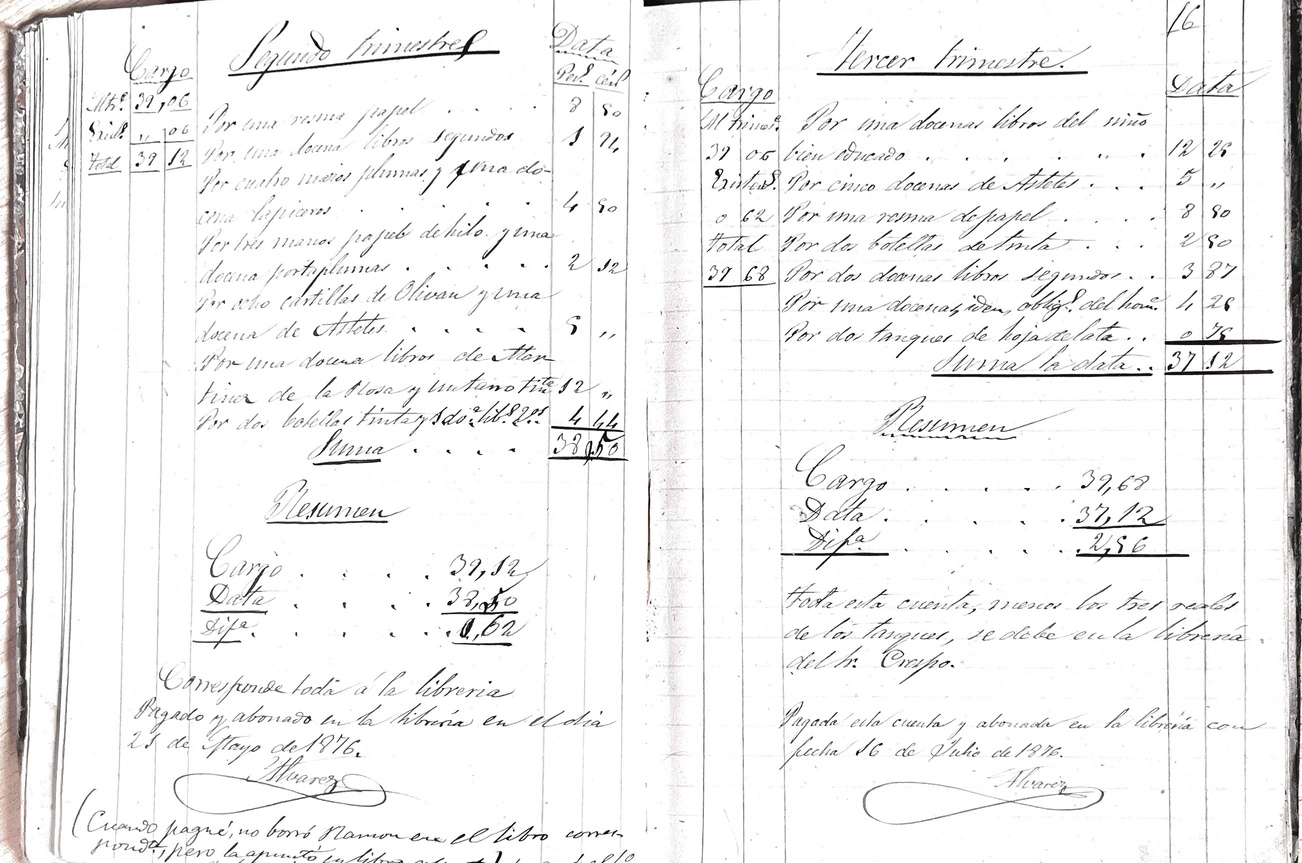 Segundo trimestre
Cargo
Data
Pes.s cén.s
Mtr.e 39,06
Exist.a „ 06
Total 39 12
Por una resma papel . . . . 8 50
Por una docena libros segundos 1 94
Por cuatro manos plumas y una do-
cena lapiceros . . . . 4 50
Por tres manos papel de hilo y una
docena portaplumas . . . . . 2 12
Por ocho cartillas de Olivan y una
docena de Astetes . . . . 5 „
Por una docena libros de Mar
tinez de la Rosa y un tarro tinta 12 „
Por dos botellas tinta y 1 do.a lib.s 2.os 4 44
Suma . . . . 38,50
Resumen
Cargo . . . . 39,12
Data . . . . 38,50
Dif.a . . . . 0,62
Corresponde toda á la libreria
Pagado y abonado en la librería en el dia
21 de Mayo de 1876.
Alvarez
(Cuando pagué, no borró Ramon en el libro corres-
pond.te, pero la apuntó en libro
16
Tercer trimestre.
Cargo
Data
M trimes.e
39 06
Exist.a
0 62
Total
39 68
Por una docenas libros del niño
bien educado . . . . . 12 25
Por cinco docenas de Astetes . . . 5 „
Por una resma de papel . . . . 8 50
Por dos botellas de tinta . . . 2 50
Por dos docenas libros segundos . . 3 87
Por una docena, iden, oblig.s del hom.e 4 25
Por dos tanques de hoja de lata . . 0 75
Suma la data . . 37 12
Resumen
Cargo . . . . . 39,68
Data . . . . . 37,12
Dif.a . . . . . 2,56
Toda esta cuenta, menos los tres reales
de los tanques, se debe en la librería
del Sr. Crespo.
Pagada esta cuenta y abonada en la librería con
fecha 16 de Julio de 1876.
Alvarez